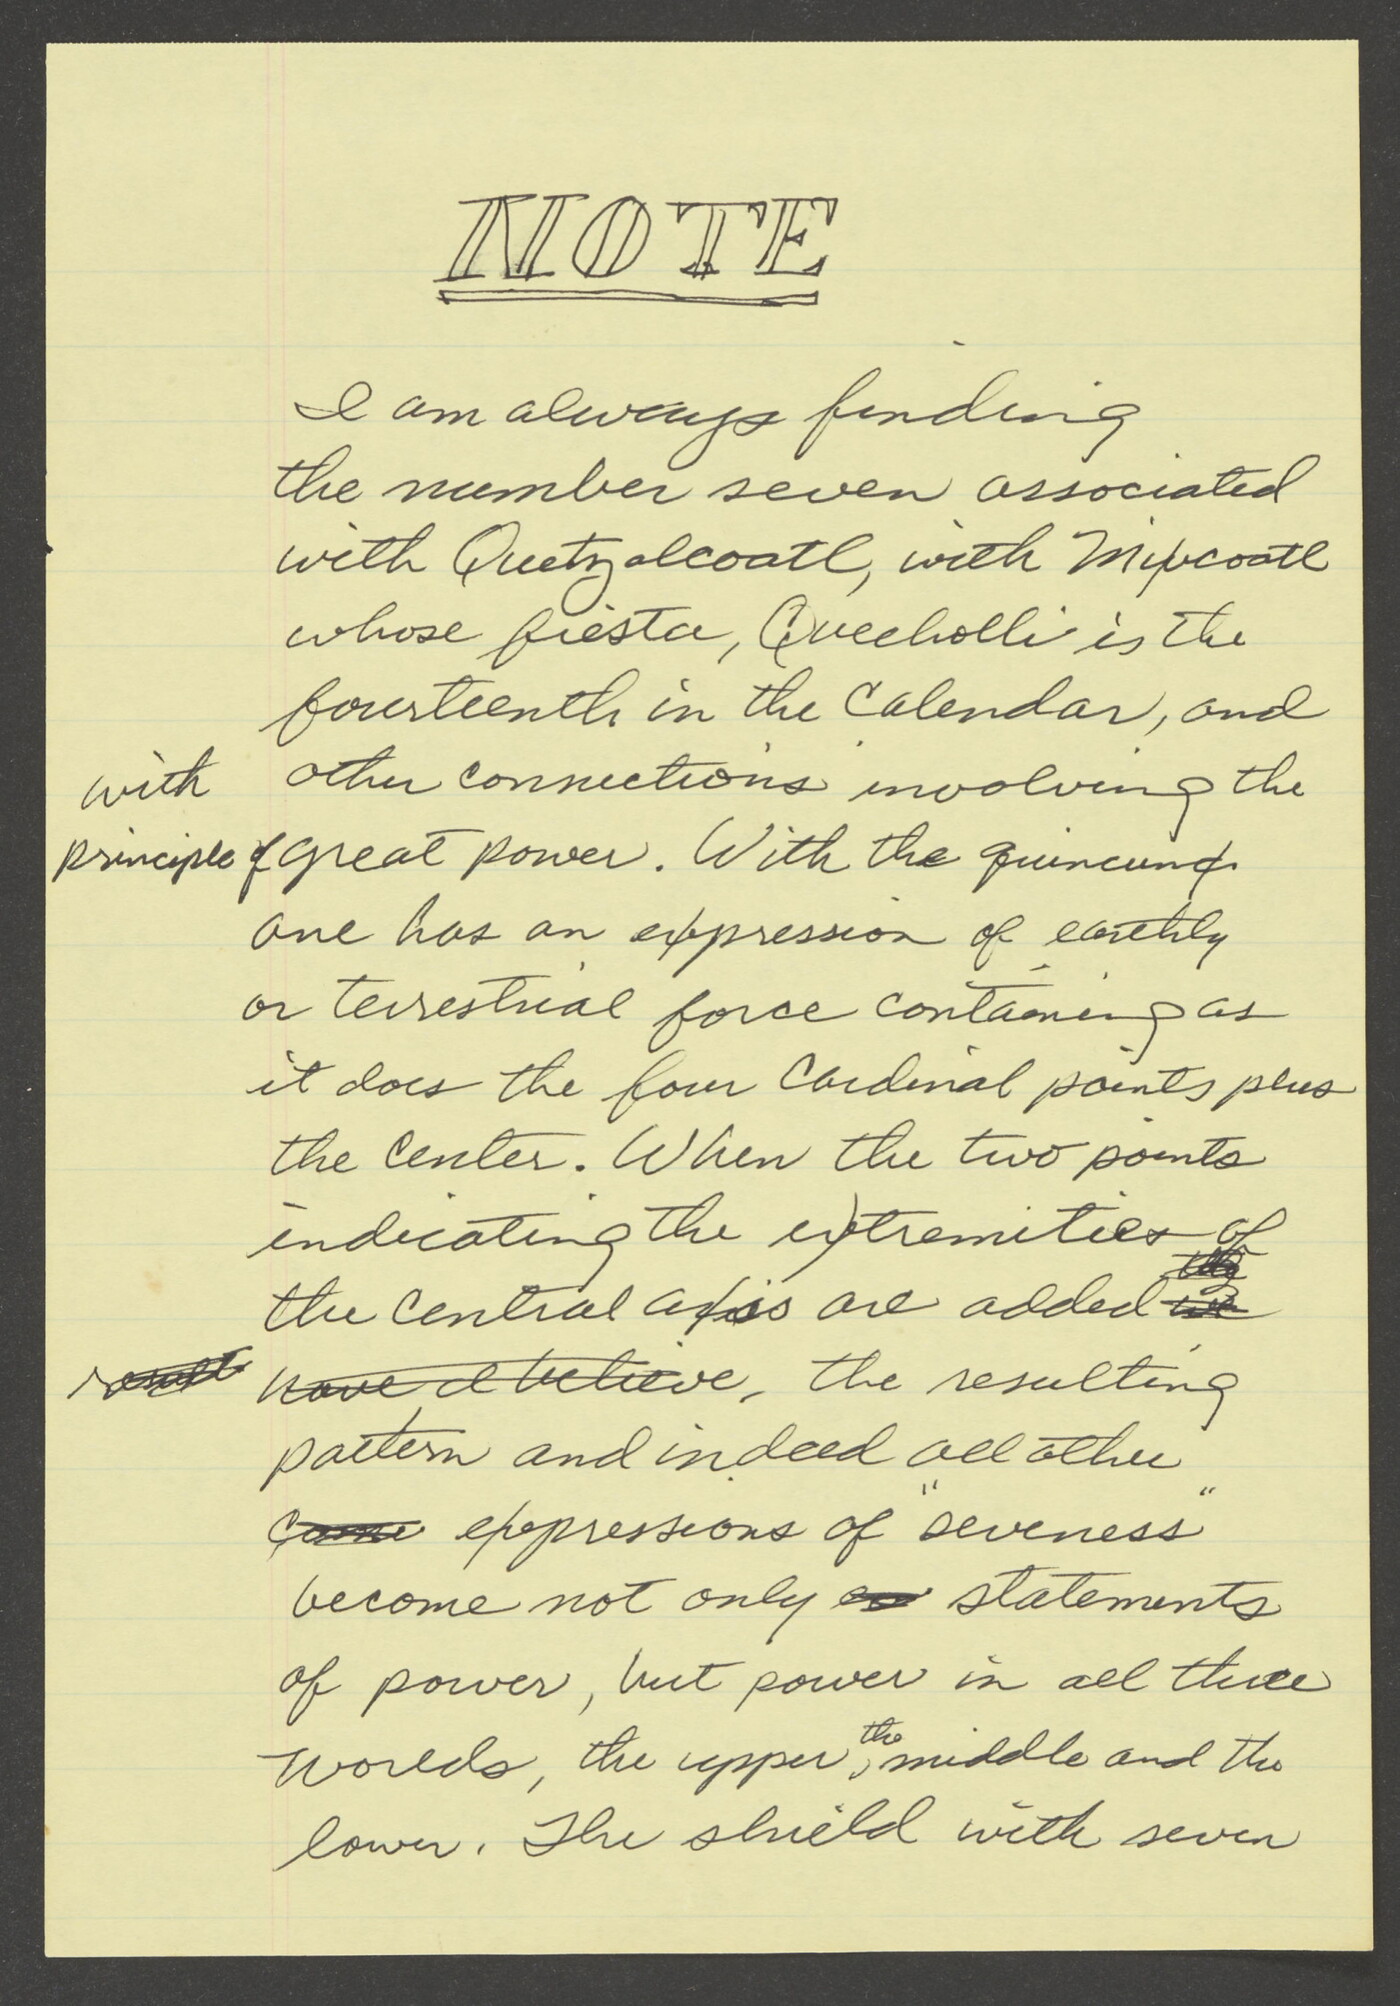 NOTE
I am always finding
the number seven associated
with Quetzalcoatl, with Mixcoatl
whose fiesta, Quecholli is the
fourteenth in the Calendar, and
with other connections involving the
principle of great power. With the quincunx
one has an expression of earthly
or terrestrial force containing as
it does the four Cardinal points plus
the Center. When the two points
indicating the extremities of
the Central axis are added
result have I believe, the resulting
pattern and indeed all other
expressions of "seveness"
become not only as statements
of power, but power in all three
worlds, the upper, the middle and the
lower. The shield with seven